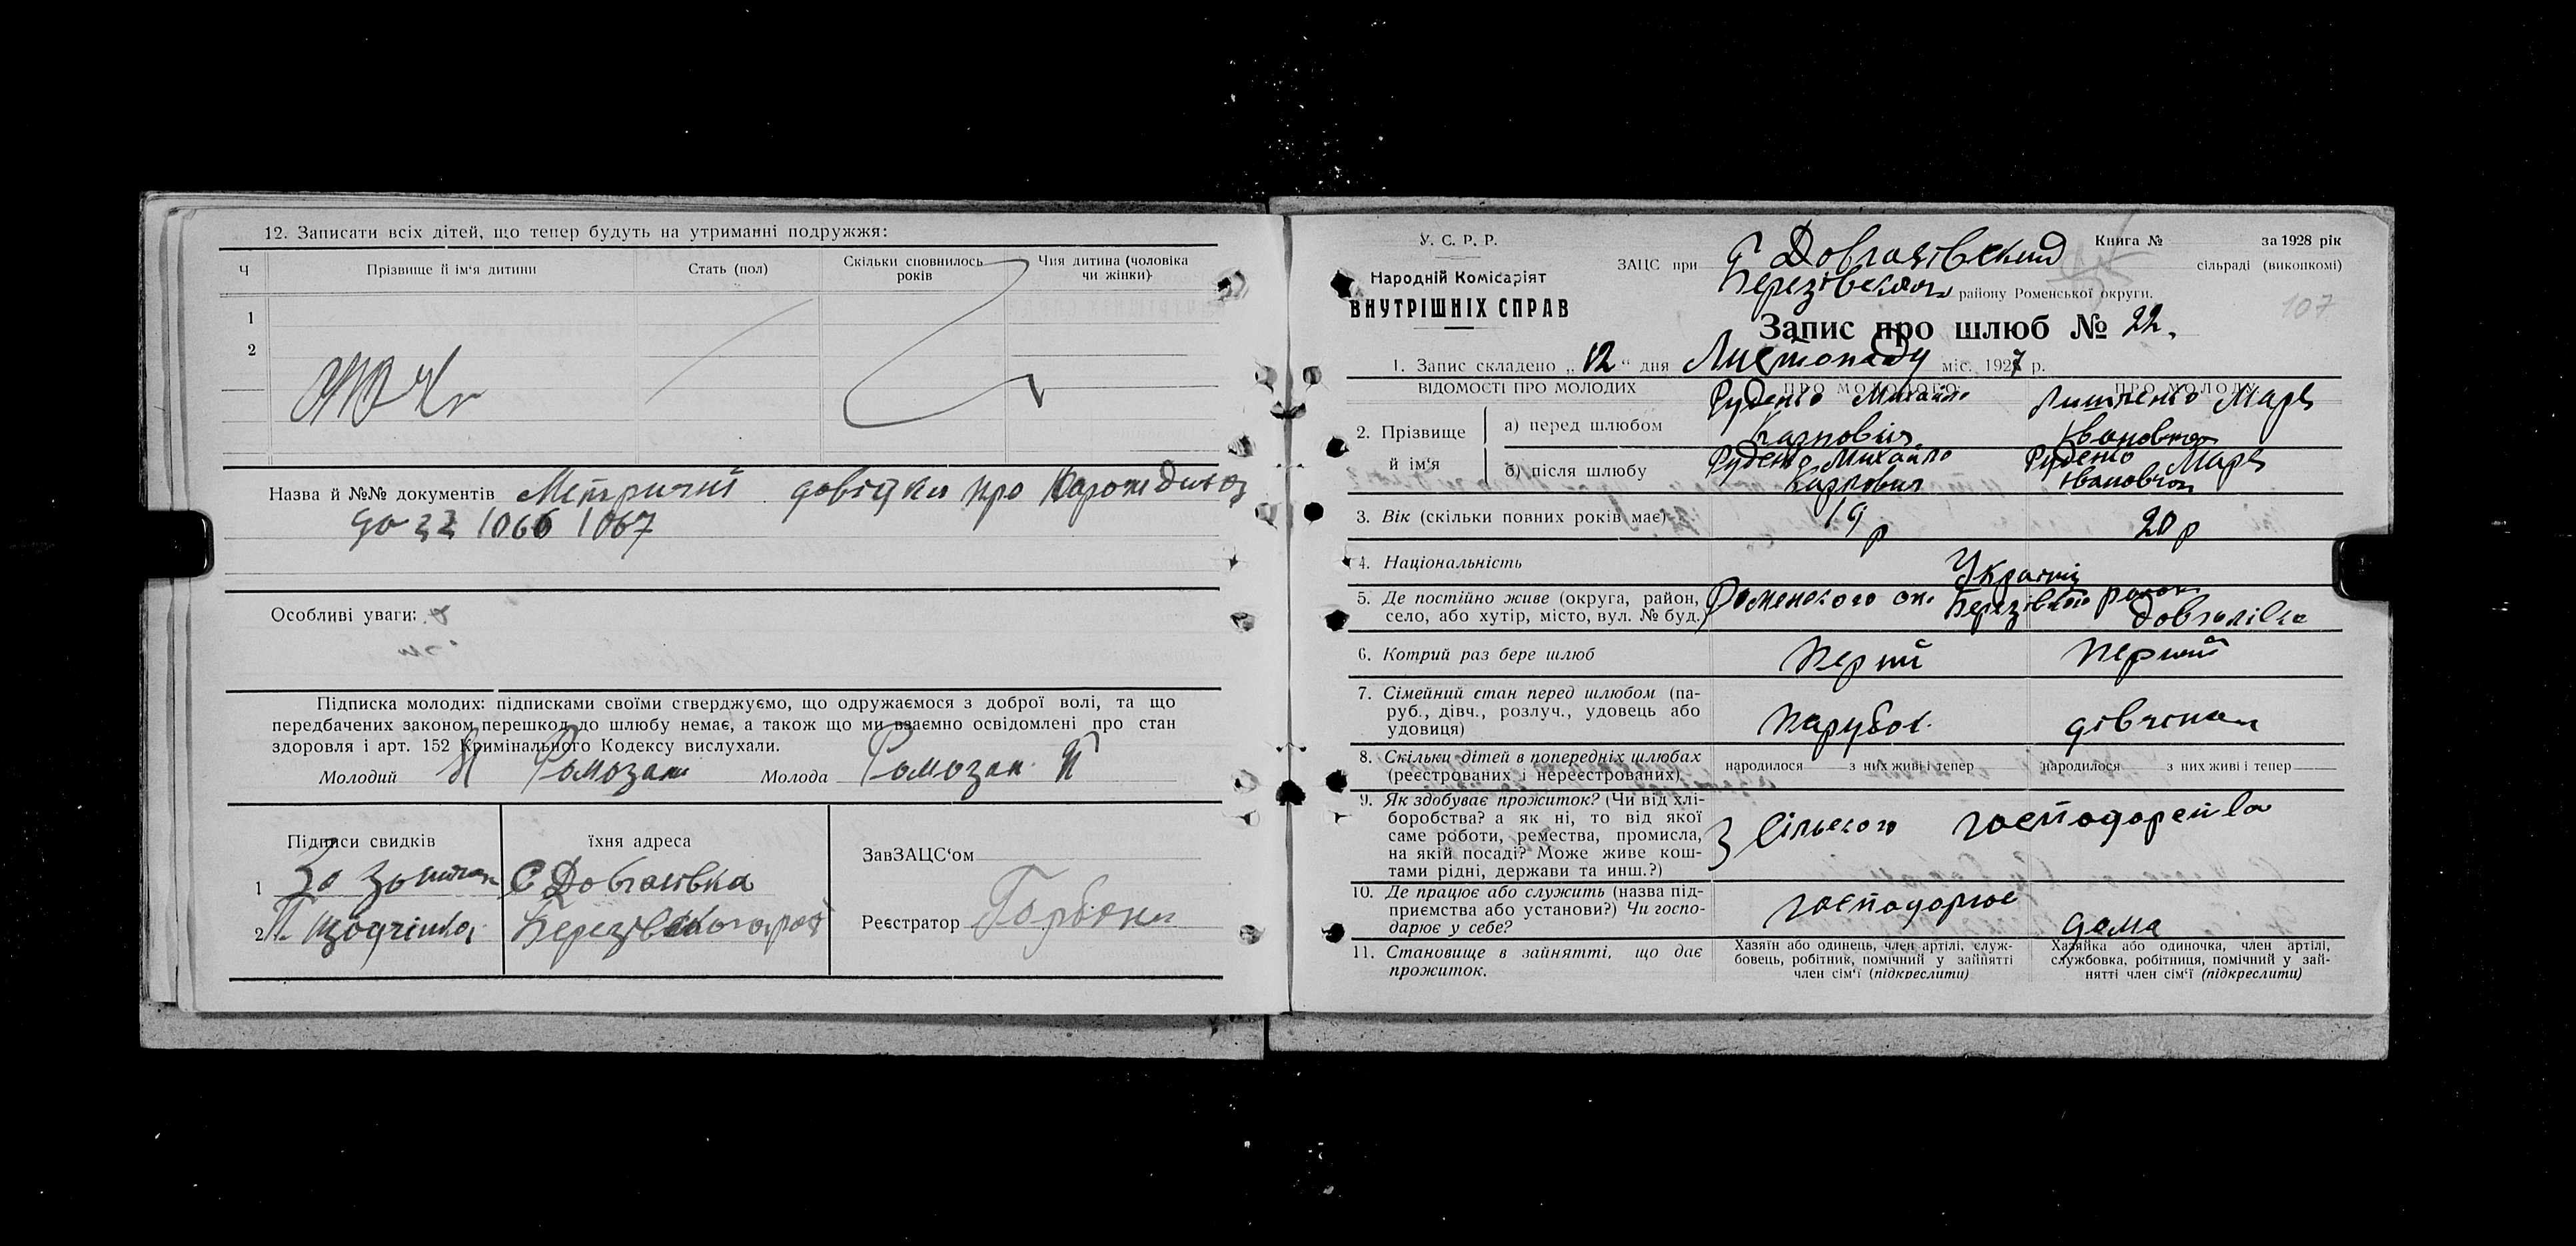 12. Записати всіх дітей, що тепер будуть на утриманні подружжя:
Ч Прізвище й ім'я дитини Стать (пол) Скільки сповнилось років Чия дитина (чоловіка чи жінки)
1
2
Назва й №№ документів Метричні довідки про
1066 1067
Особливі уваги:
Підписка молодих: підписками своїми стверджуємо, що одружаємося з доброї волі, та що
передбачених законом перешкод до шлюбу немає, а також що ми взаємно освідомлені про стан
здоровля і арт. 152 Кримінального Кодексу вислухали.
Молодий Ромозан Молода Ромозан
Підписи свидків їхня адреса
ЗавЗАЦС'ом
1 С Довгалівка
2 Березівського рай
Реєстратор Горбони
У. С. Р. Р.
Народній Комісаріят
ВНУТРІШНІХ СПРАВ
Книга № за 1928 рік
ЗАЦС при сільраді (викопкомі)
Березівського району Роменської округи.
107
Запис про шлюб № 22.
1. Запис складено „12" дня Листопаду міс. 1927 р.
ВІДОМОСТІ ПРО МОЛОДИХ ПРО МОЛОДОГО ПРО МОЛОДУ
2. Прізвище й ім'я
а) перед шлюбом Руденко Михайло Карпович Марія Івановна
б) після шлюбу Руденко Михайло Карпович Руденко Марія Івановна
3. Вік (скільки повних років має) 19 р 20 р
4. Національність Українці
5. Де постійно живе (округа, район,
село, або хутір, місто, вул. № буд.) Роменского ок. Березівского району Довгалівка
6. Котрий раз бере шлюб Перший Перший
7. Сімейний стан перед шлюбом (па-
руб., дівч., розлуч., удовець або
удовиця) Парубок дівчина
8. Скільки дітей в попередніх шлюбах
(реєстрованих і нереєстрованих) народилося з них живі і тепер народилося з них живі і тепер
9. Як здобуває прожиток? (Чи від хлі-
боробства? а як ні, то від якої
саме роботи, ремества, промисла,
на якій посаді? Може живе кош-
тами рідні, держави та инш.?) З сільского господарства
10. Де працює або служить (назва під-
приємства або установи?) Чи госпо-
дарює у себе? господарює дома
11. Становище в зайнятті, що дає
прожиток.
Хазяїн або одинець, член артілі, служ-
бовець, робітник, помічний у зайнятті
член сім'ї (підкреслити)
Хазяйка або одиночка, член артілі,
службовка, робітниця, помічний у зай-
нятті член сім'ї (підкреслити)